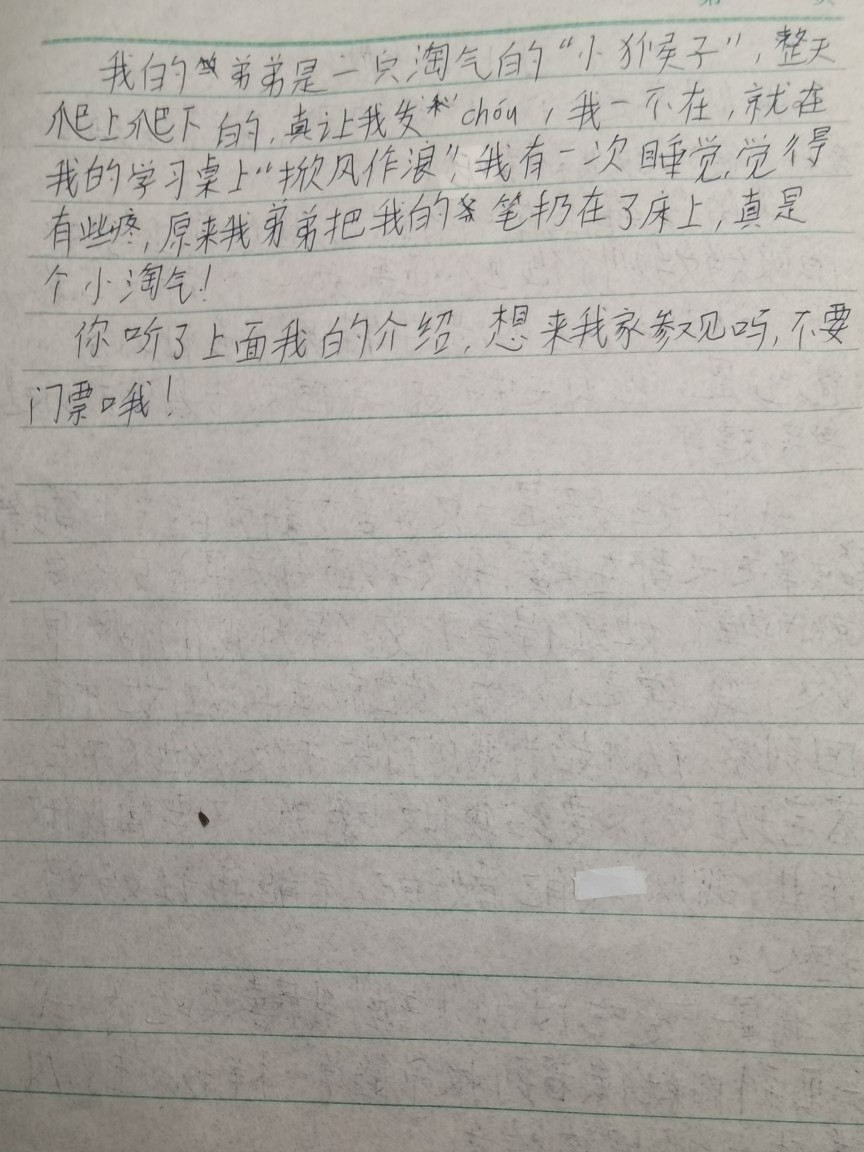 我的弟弟是一只淘气的“小猴子”，整天
爬上爬下的，真让我发chóu，我一不在，就在
我的学习桌上“掀风作浪”，我有一次睡觉，觉得
有些疼，原来我弟弟把我的笔扔在了床上，真是
个小淘气！
你听了上面我的介绍，想来我家参观吗，不要
门票哦！